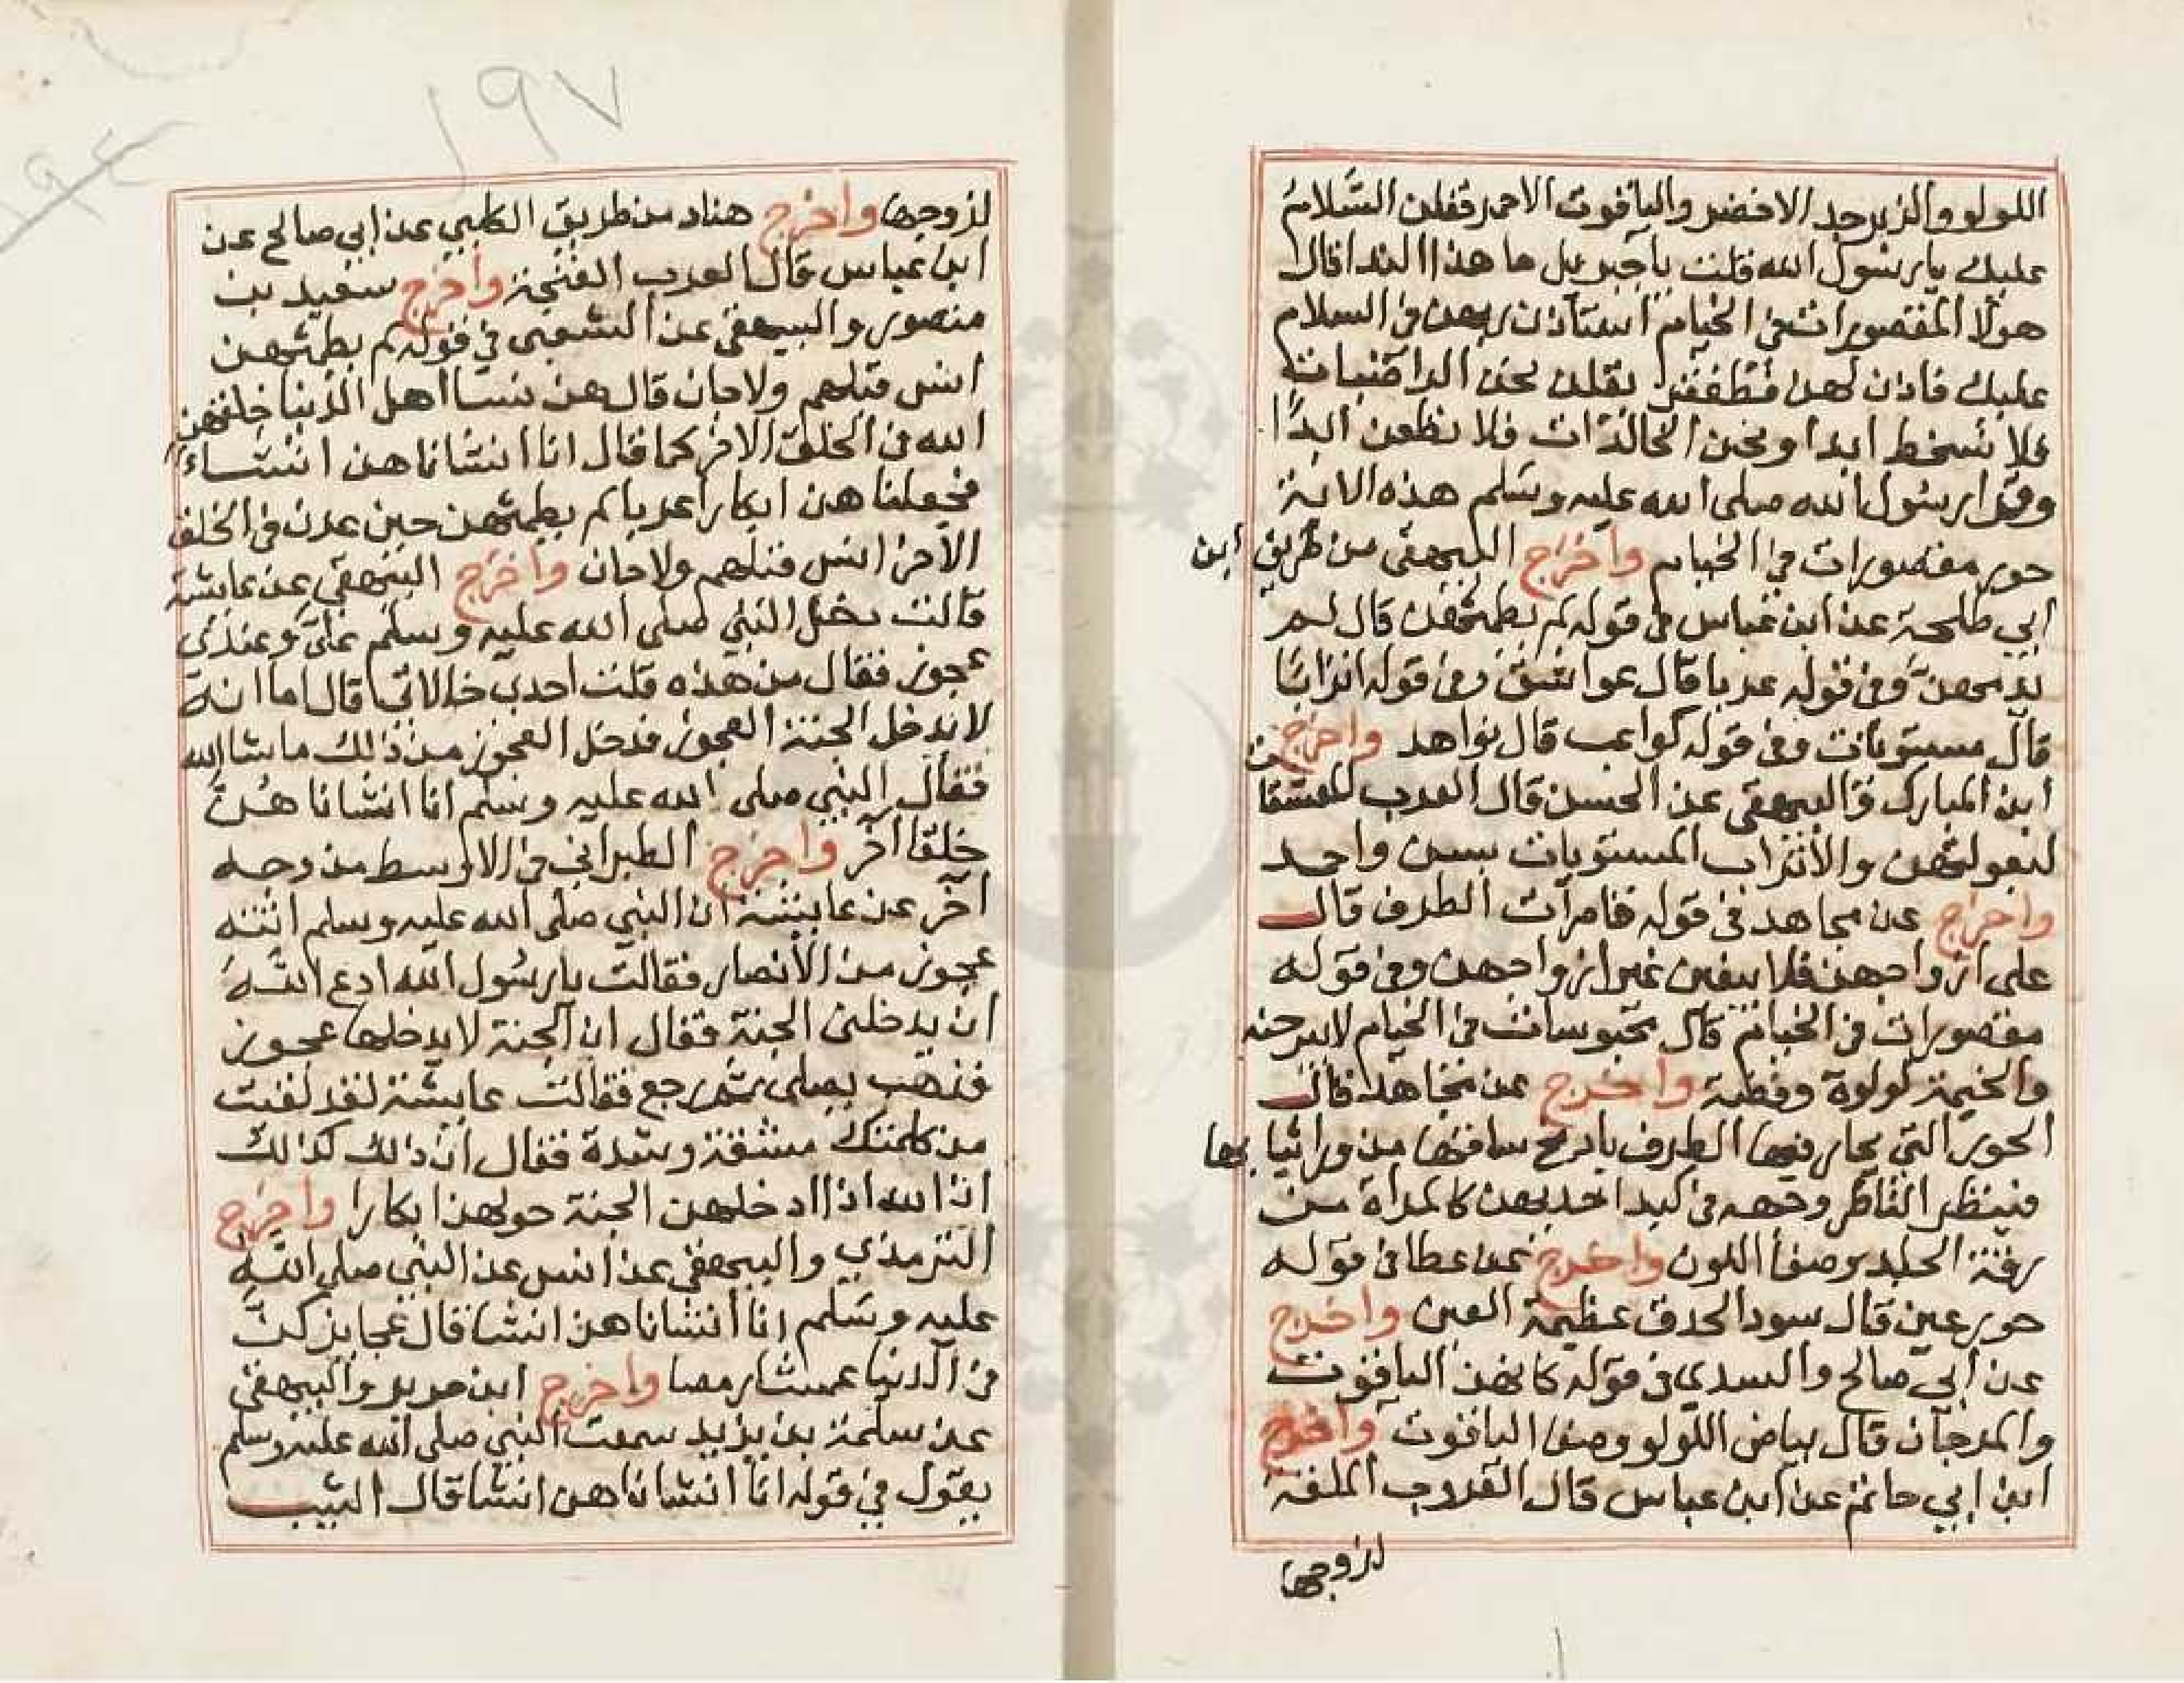 اللولو والزبرجد الاخضر والياقوت الاحمر فقلن السلام
عليك يا رسول الله فقلت يا جبريل ما هذا الندا قال
هولا المقصورات في الخيام استاذن ربهن في السلام
عليك فاذن لهن فطفقن يقلن نحن الراضيات
فلا نسخط ابدا ونحن الخالدات فلا نظعن ابدا
وقرا رسول الله صلى الله عليه وسلم هذه الاية
حور مقصورات في الخيام واخرج البيهقي من طريق ابن
ابي طلحة عن ابن عباس في قوله لم يطمثهن قال لم
يدمهن وفي قوله عربا قال عواشق وفي قوله اترابا
قال مستويات وفي قوله كواعب قال نواهد واخرج
ابن المبارك والبيهقي عن الحسن قال العرب المعشقا
لبعولتهن والأتراب المستويات بسن واحد
واخرج عن مجاهد في قوله قاصرات الطرف قال
على ازواجهن فلا يبغين غير ازواجهن وفي قوله
مقصورات في الخيام قال محبوسات في الخيام لايبرحنه
والخيمة لولوة وفضة واخرج عن مجاهد قال
الحور التي يحار فيها الطرف بادي مخ ساقها من ورا ثيابها
فينظر الناظر وجهه في كبد احديهن كالمراة من
رقة الجلد وصفا اللون واخرج عن عطا في قوله
حور عين قال سود الحدق عظيمة العين واخرج
عن ابي صالح والسدي في قوله كانهن الياقوت
والمرجان قال بياض اللولو وصفا الياقوت واخرج
ابن ابي حاتم عن ابن عباس قال العروب الملقة
لزوجها
١٩٧
لزوجها واخرج هناد من طريق الكلبي عن ابي صالح عن
ابن عباس قال العرب الغنجة واخرج سعيد بن
منصور والبيهقي عن الشعبي في قوله لم يطمثهن
انس قبلهم ولاجان قال هن نسا اهل الدنيا خلقهن
الله في الخلق الاخر كما قال انا انشاناهن انشاء
فجعلناهن ابكارا عربا لم يطمثهن حين عدن في الخلق
الآخر انس قبلهم ولاجان واخرج البيهقي عن عايشة
قالت دخل النبي صلى الله عليه وسلم علي وعندي
عجوز فقال من هذه قلت احدى خالاتي قال اما انه
لا يدخل الجنة العجوز فدخل العجوز من ذلك ما شا الله
فقال النبي صلى الله عليه وسلم انا انشانا هن
خلقا آخر واخرج الطبراني في الاوسط من وجه
آخر عن عايشة ان النبي صلى الله عليه وسلم اتته
عجوز من الأنصار فقالت يا رسول الله ادع الله
ان يدخلني الجنة فقال ان الجنة لا يدخلها عجوز
فذهب يصلي ثم رجع فقالت عايشة لقد لقيت
من كلمتك مشقة وشدة فقال ان ذلك كذلك
ان الله اذا ادخلهن الجنة حولهن ابكارا واخرج
الترمذي والبيهقي عن انس عن النبي صلى الله
عليه وسلم انا انشاناهن انشا قال عجايز كن
في الدنيا عمشا رمصا واخرج ابن جرير والبيهقي
عن سلمة بن يزيد سمعت النبي صلى الله عليه وسلم
يقول في قوله انا انشاناهن انشا قال الثيب